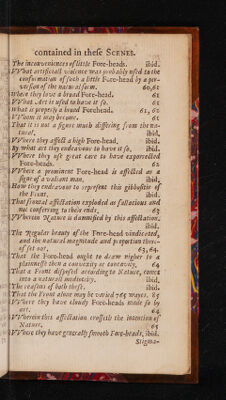 contained in these SCENES.
The inconveniences of little Fore-heads. ibid.
VVhat artificiall violence was probably used to the
conformation of such a little Fore-head by a per-
version of the naturall form. 60,61
Where they love a broad Fore-head. 61
VVhat Art is used to have it so. 61
What is properly a broad Forehead. 61, 62
VVhom it may become. 61
That it is not a figure much differing from the na-
turall. ibid.
VVhere they affect a high Fore-head, ibid.
By what art they endeavour to have it so. ibid.
VVhere they use great care to have
Fore-heads. 62
VVhere a prominent Fore-head is affected as a
signe of a valiant man. ibid,
How they endeavour to represent this gibbositie of
the Front. ibid.
That frontal affectation exploded as fallacious and
not conferring to their ends, 63
VVherein Nature is damnified by this affectation.
ibid.
The Regular beauty of the Fore-head vindicated,
and the naturall magnitude and proportion there-
of set out. 63, 64
That the Fore-head ought to draw nigher to a
plainnesse then a convexity or concavity. 64
That a Front disposed according to Nature, comes
into a naturall mediocrity. ibid.
The reasons of both these. ibid.
That the Front alone may be varied 765 wayes. 65
VVhere they have cloudy Fore-heads made so by
art. 64
VVherein this affectation crosseth the intention of
Nature. 65
VVhere they have generally smooth Fore-heads, ibid.
Stigma-